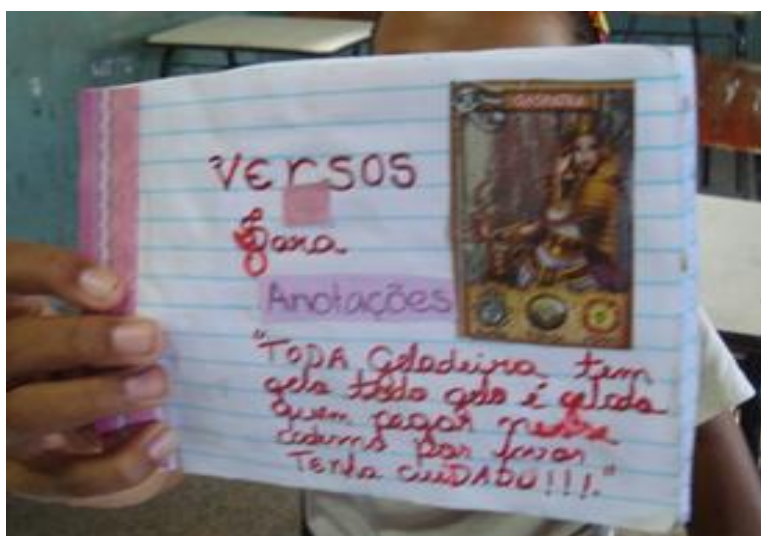 VERSOS
Para
Anotações
"TODA Geladeira tem
gelo todo gelo é gelado
quem pegar nesse
caderno por favor
Tenha CUIDADO!!!."